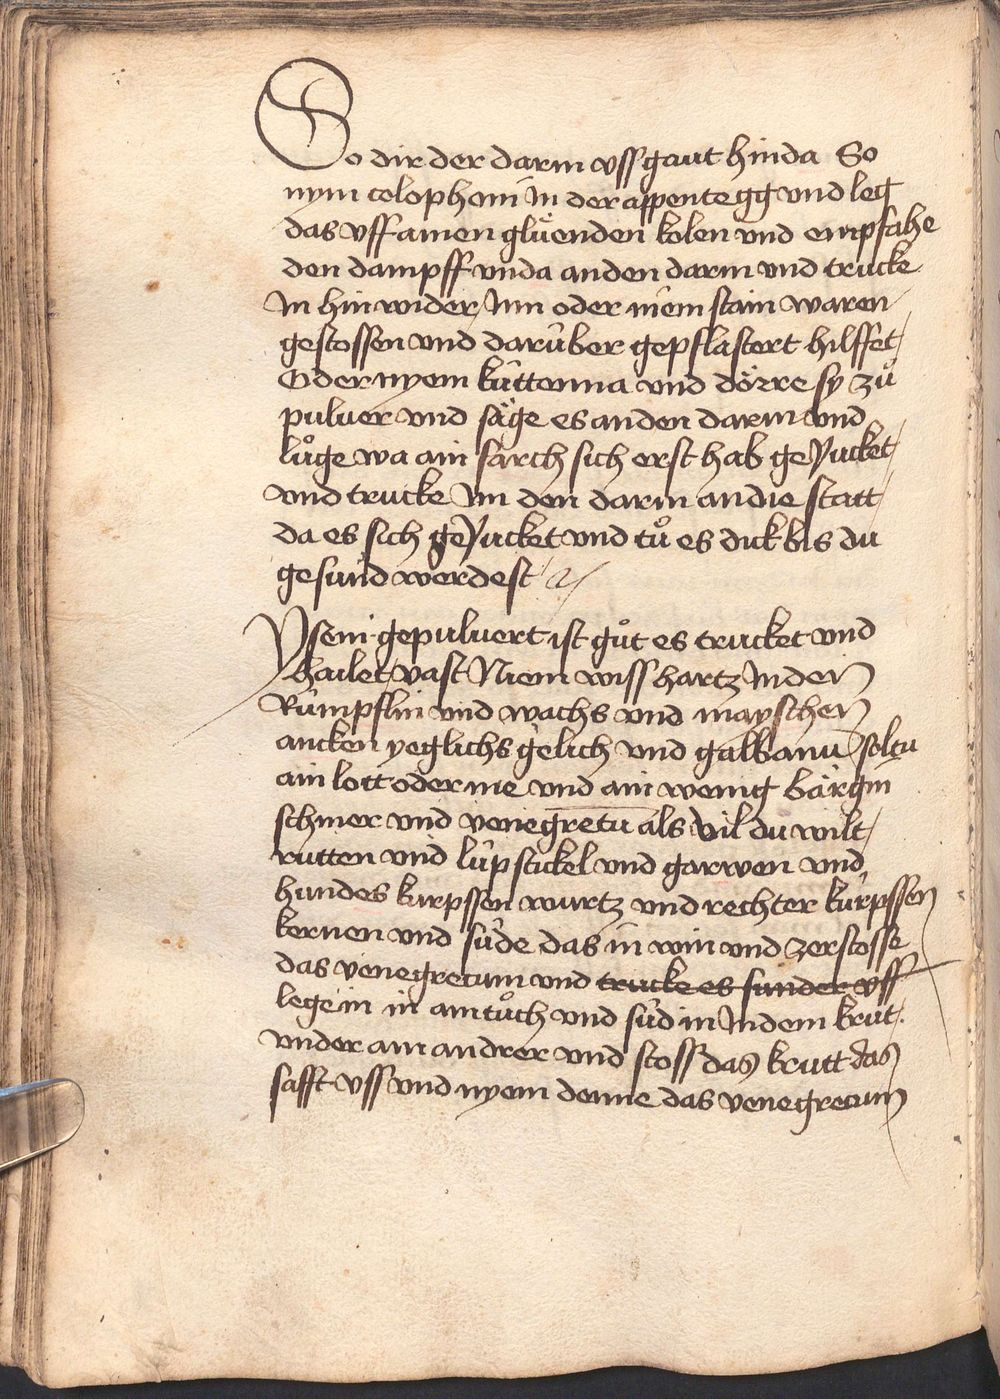 So dir der darm vss gaut hinda So
nym colophoni In der appentegg vnd leg
das vff ainen glüenden kolen vnd empfahe
den dampff vnda an den darm vnd trucke
In hin wider Inn oder niem stain waren
gestossen vnd darúber gepflastert hilffet /
Oder nyem kúttenna vnd dörre sy zů
puluer vnd säge es an den darm vnd
lůge wa ain sarch sich erst hab geJucket /
vnd trucke Im den darm an die statt /
da es sich geJucket vnd tů es dick bis du
gesund werdest /
Yseni gepuluert ist gůt es trucket vnd
hailet vast Niem wiss hartz In den
Rúmpflin vnd wachs vnd mayschen
ancken yeglichs gelich vnd galbanū soltu
ain lott oder me vnd ain wenig bärgin
schmer vnd venegretū als vil du wilt /
rutten vnd lúpstickel vnd garwen vnd
hundes kúrpssen wurtz vnd rechter kúrpssen
kernen vnd súde das in win vnd zerstosse
das venegrecum vnd trucke es sunder vff
lege in in ain tůch vnd súd in In dem krut.
vnder ain andrer vnd stoss das krutt das
safft vss vnd nyem denne das venegrecum